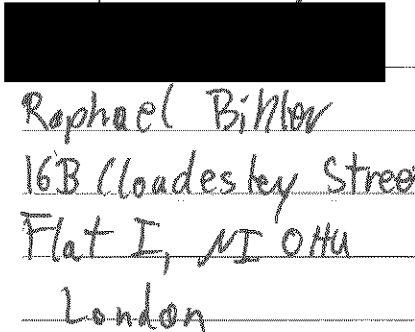 Raphael Bihler
16B Cloadesley Stree
Flat I, NI OHU
London